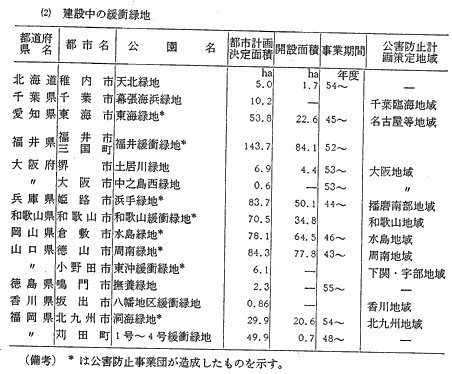 (2) 建設中の緩衝緑地
都道府県名 都市名 公園名 都市計画決定面積 開設面積 事業期間 公害防止計画策定地域
ha ha 年度
北海道 稚内市 天北緑地 5.0 1.7 54〜 —
千葉県 千葉市 幕張海浜緑地 10.2 — 千葉臨海地域
愛知県 東海市 東海緑地* 53.8 22.6 45〜 名古屋等地域
福井県 福井市三国町 福井緩衝緑地* 143.7 84.1 52〜 —
大阪府 堺市 土居川緑地 6.9 4.4 53〜 大阪地域
〃 大阪市 中之島西緑地 0.6 — 53〜 〃
兵庫県 姫路市 浜手緑地* 83.7 50.1 44〜 播磨南部地域
和歌山県 和歌山市 和歌山緩衝緑地* 70.5 34.8 和歌山地域
岡山県 倉敷市 水島緑地* 78.1 64.5 46〜 水島地域
山口県 徳山市 周南緑地* 84.3 77.8 43〜 周南地域
〃 小野田市 東沖緩衝緑地* 6.1 — 下関・宇部地域
徳島県 鳴門市 撫養緑地 2.3 — 55〜 —
香川県 坂出市 八幡地区緩衝緑地 0.86 — 香川地域
福岡県 北九州市 洞海緑地* 29.9 20.6 54〜 北九州地域
〃 苅田町 1号〜4号緩衝緑地 49.9 0.7 48〜 —
(備考) * は公害防止事業団が造成したものを示す。